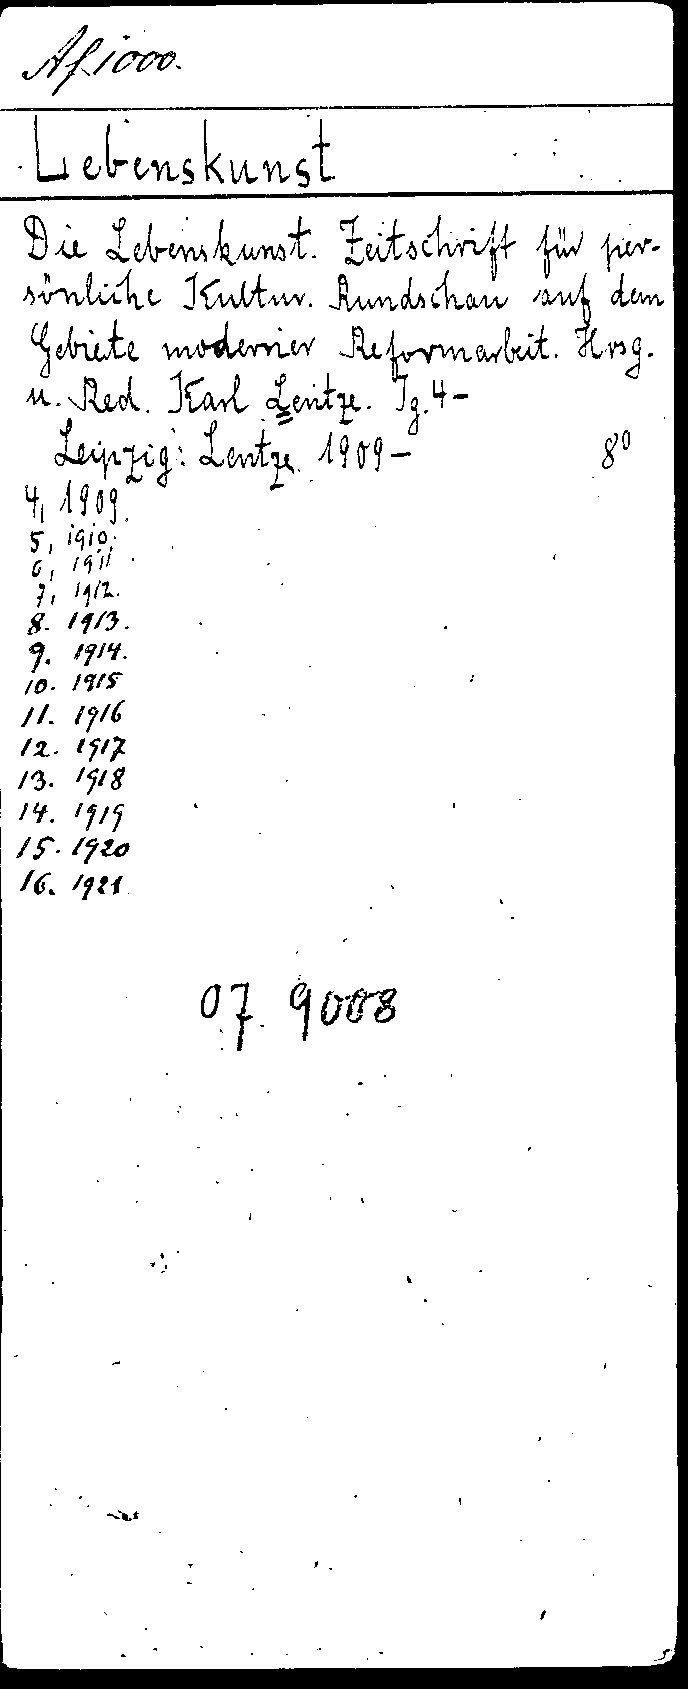 Af 1000.
Lebenskunst
Die Lebenskunst. Zeitschrift für per-
sönliche Kultur. Rundschau auf dem
Gebiete moderner Reformarbeit. Hrsg.
u. Red. Karl Lentze. Jg. 4-
Leipzig: Lentze 1909- 8°
4, 1909.
5, 1910.
6, 1911
7, 1912.
8. 1913.
9. 1914.
10. 1915
11. 1916
12. 1917
13. 1918
14. 1919
15. 1920
16. 1921
07 9008